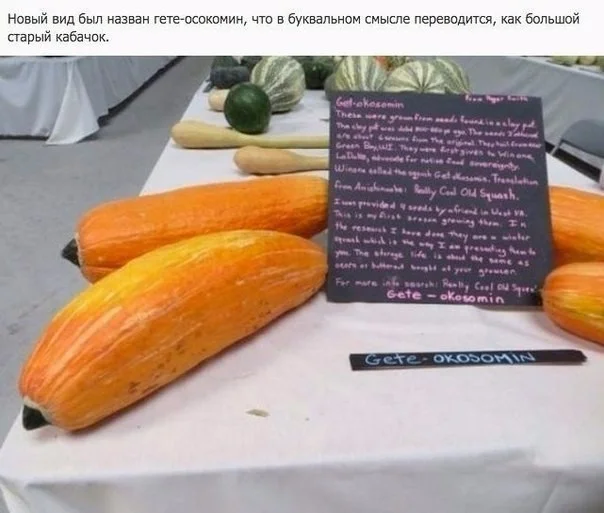 Новый вид был назван гете-осокомин, что в буквальном смысле переводится, как большой
старый кабачок.
Get-okosomin From Roger Smith
These were grown from seeds found in a clay pot.
The clay pot was 800 yrs ago. The seeds I obtained
are about 6 seasons from the original. They hail from
Green Bay, WI. They were first given to Winona
LaDuke, advocate for native food sovereignty.
Winona called the squash Gete okosomin. Translation
from Anishinabe: Really Cool Old Squash.
I was provided 4 seeds by a friend in West VA.
This is my first season growing them. In
the research I have done they are a winter
squash which is the way I am presenting them to
you. The storage life is about the same as
acorn or butternut bought at your grower.
For more info search: Really Cool Old Squash
Gete - okosomin
Gete-OKOSOMIN